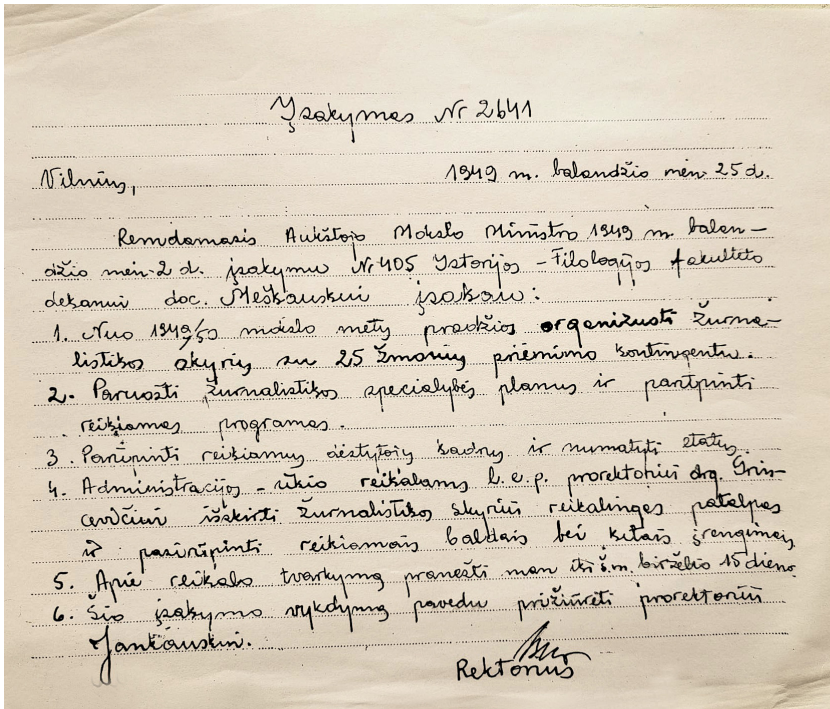 Įsakymas Nr 2641
Vilnius, 1949 m. balandžio mėn. 25 d.
Remdamasis Aukštojo Mokslo Ministro 1949 m. balan-
džio mėn. 2 d. įsakymu Nr 405 Istorijos-Filologijos fakulteto
dekanui doc. Meškauskui įsakau:
1. Nuo 1949/50 mokslo metų pradžios organizuoti žurna-
listikos skyrių su 25 žmonių priėmimo kontingentu.
2. Paruošti žurnalistikos specialybės planus ir parūpinti
reikiamas programas.
3. Parūpinti reikiamus dėstytojų kadrus ir numatyti etatus.
4. Administracijos-ūkio reikalams l.e.p. prorektoriui drg. Grin-
cevičiui išskirti žurnalistikos skyriui reikalingas patalpas
ir pasirūpinti reikiamais baldais bei kitais įrengimais.
5. Apie reikalo tvarkymą pranešti man iki š.m. birželio 15 dienos.
6. Šio įsakymo vykdymą pavedu prižiūrėti prorektoriui
Jankauskui.
Rektorius